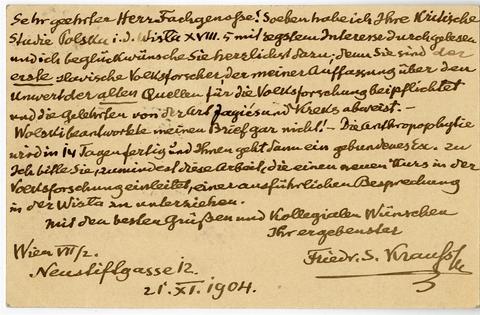 Sehr geehrter Herr Fachgenosse! Soeben habe ich Ihre Kritische
Studie Polska i. d. Wisła XVIII. 5 mit regstem Interesse durchgelesen
und ich beglückwünsche Sie herzlichst dazu. Denn Sie sind der
erste slavische Volksforscher, der meiner Auffassung über den
Unwert der alten Quellen für die Volksforschung beipflichtet
und die Gelehrten von der Art Jagićs und Kreks abweist. –
beantwortete meinen Brief gar nicht! – Die Anthropophyteia
wird in 14 Tagen fertig und Ihnen geht dann ein gebundenes Ex. zu
Ich bitte Sie, zumindest diese Arbeit, die einen neuen Kurs in der
Volksforschung einleitet, einer ausführlichen Besprechung
in der Wisła zu unterziehen.
Mit den besten Grüßen und Kollegialen Wünschen
Ihr ergebenster
Wien VII/2.
Neustiftgasse 12.
Friedr. S. Krauss
21. XI. 1904.